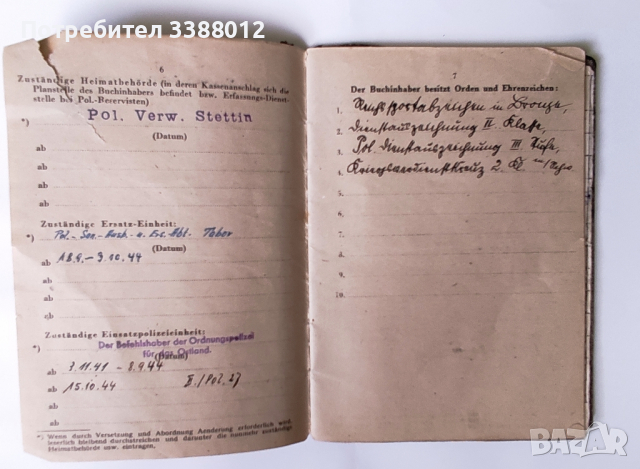 Потребител 3388012
6
Zuständige Heimatbehörde (in deren Kassenanschlag sich die
Planstelle des Buchinhabers befindet bzw. Erfassungs-Dienst-
stelle bei Pol.-Reservisten)
*) Pol. Verw. Stettin
(Datum)
ab
ab
ab
ab
Zuständige Ersatz-Einheit:
*) Pol.- - u. Ers. Abt. Tabor
(Datum)
ab 1.8.9.-3.10.44
ab
ab
ab
Zuständige Einsatzpolizeieinheit:
*) Der Befehlshaber der Ordnungspolizei
für das Ostland.
(Datum)
ab 7.11.41 - 8.9.44
ab 15.10.44 II./Pol. 27
ab
ab
*) Wenn durch Versetzung und Abordnung Aenderung erforderlich wird,
leserlich bleibend durchstreichen und darunter die nunmehr zuständige
Heimatbehörde usw. eintragen.
7
Der Buchinhaber besitzt Orden und Ehrenzeichen:
1. Reichssportabzeichen in Bronze,
2. Dienstauszeichnung II. Klasse,
3. Pol. Dienstauszeichnung III. Stufe,
4. Kriegsverdienstkreuz 2. Kl. m/Schw.
5.
6.
7.
8.
9.
10.
BAZAR